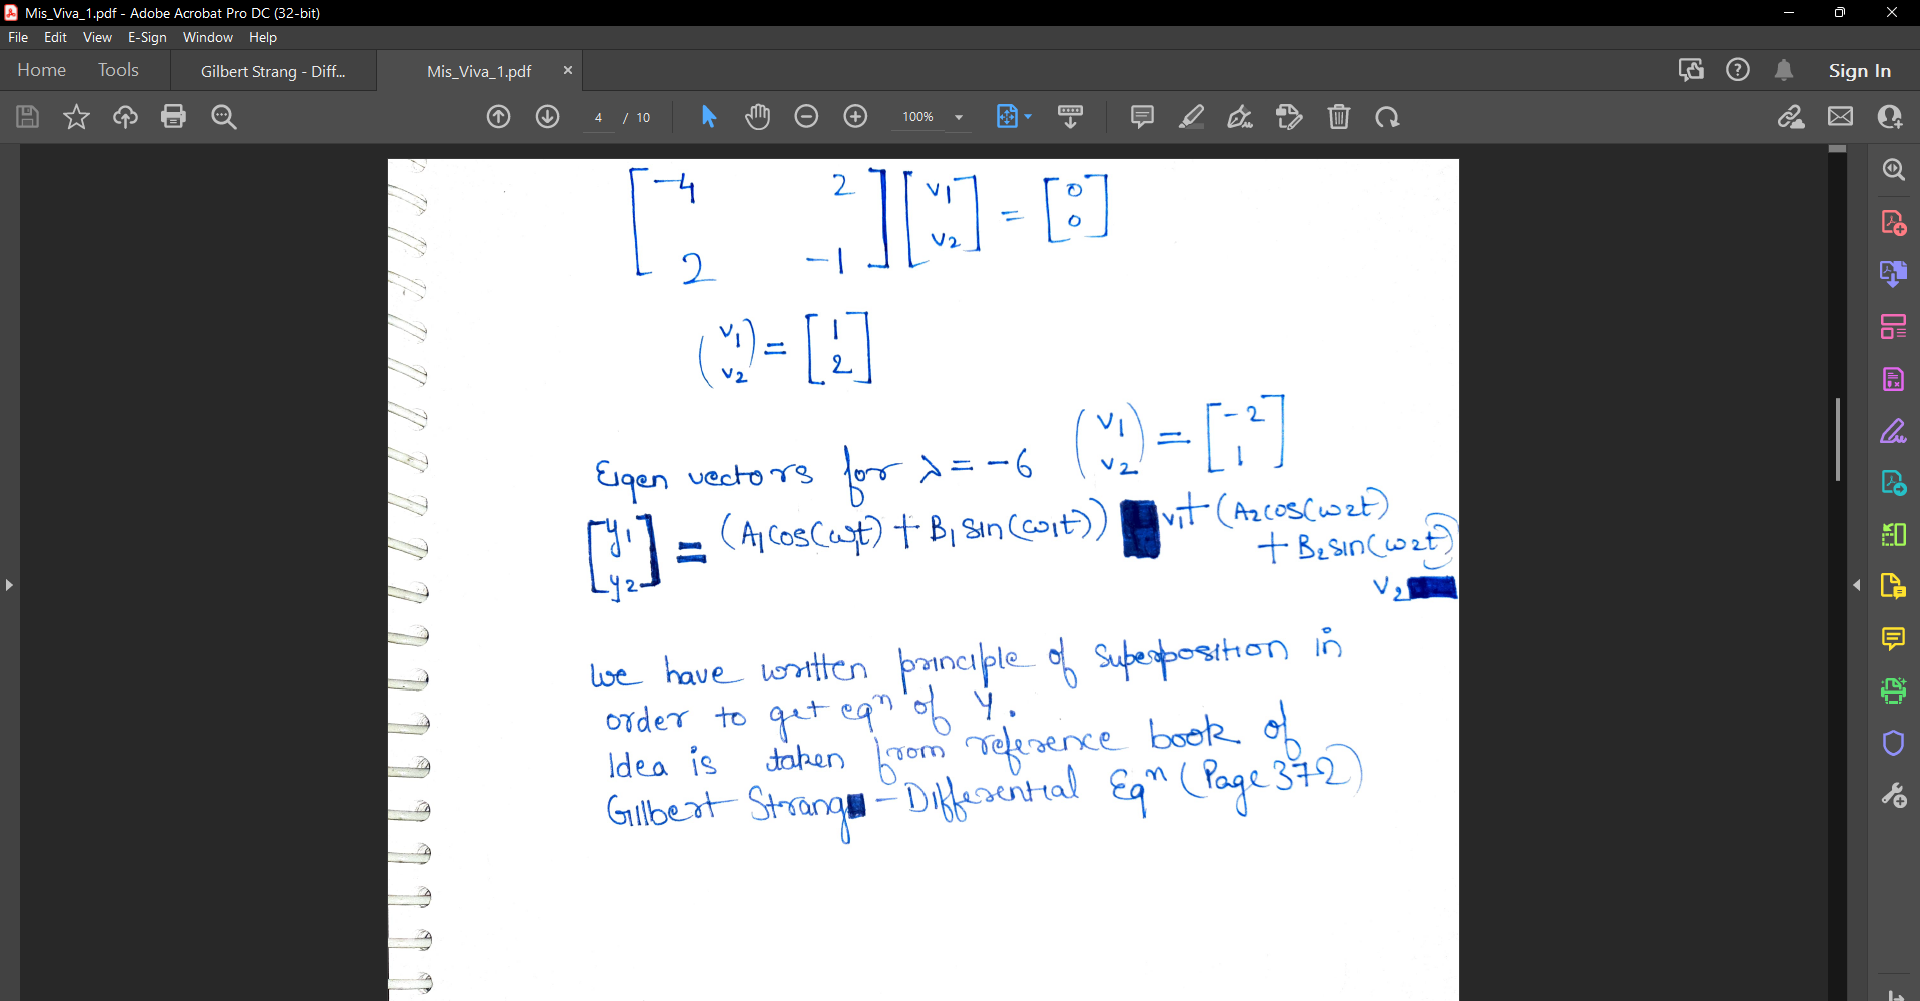 Mis_Viva_1.pdf - Adobe Acrobat Pro DC (32-bit)
File Edit View E-Sign Window Help
Home Tools Gilbert Strang - Diff... Mis_Viva_1.pdf × Sign In
4 / 10 100%
[-4 2] [v1] = [0]
[2 -1] [v2] [0]
(v1) = [1]
(v2) [2]
Eigen vectors for λ = -6 (v1) = [-2]
(v2) [1]
[y1] = (A1cos(ω1t) + B1sin(ω1t)) v1+ (A2cos(ω2t)
[y2] + B2sin(ω2t)
v2
We have written principle of superposition in
order to get eqn of y.
Idea is taken from reference book of
Gilbert Strang - Differential Eqn (Page 372)